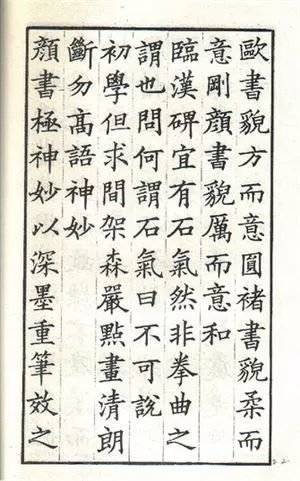 歐書貌方而意圓褚書貌柔而
意剛顔書貌厲而意和
臨漢碑宜有石氣然非拳曲之
謂也問何謂石氣曰不可說
初學但求間架森嚴點畫清朗
斷勿高語神妙
顔書極神妙以深墨重筆效之